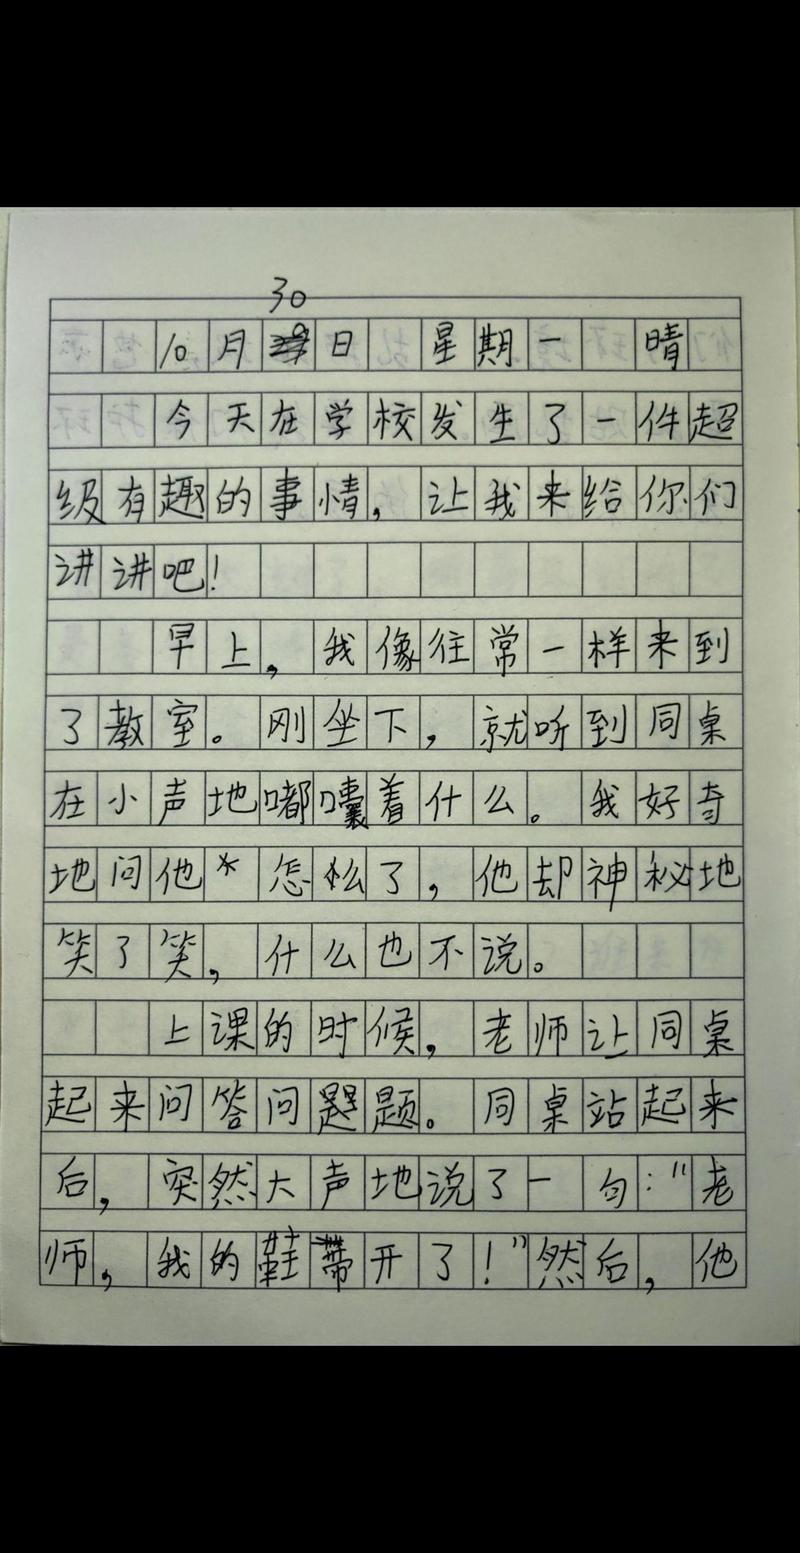 30
10月日 星期一 晴
今天在学校发生了一件超
级有趣的事情，让我来给你们
讲讲吧！
早上，我像往常一样来到
了教室。刚坐下，就听到同桌
在小声地嘟囔着什么。我好奇
地问他*怎么了，他却神秘地
笑了笑，什么也不说。
上课的时候，老师让同桌
起来问答问题。同桌站起来
后，突然大声地说了一句："老
师，我的鞋带开了！"然后，他